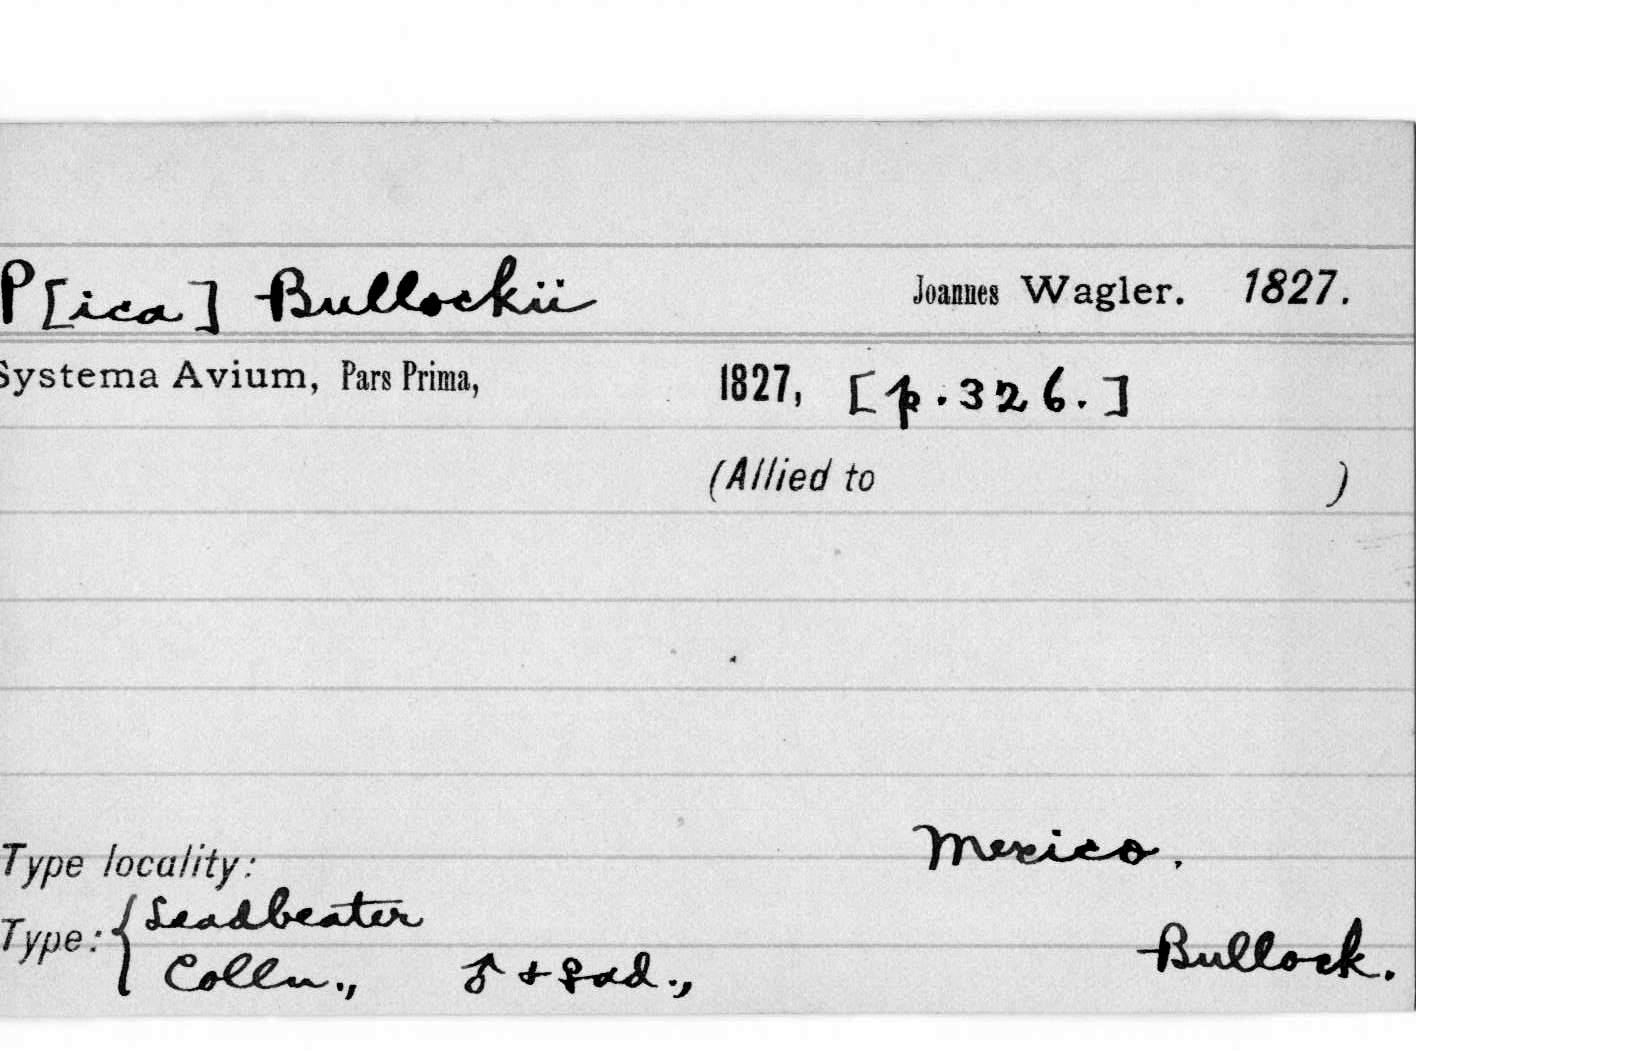 P[ica] Bullockii Joannes Wagler. 1827.
Systema Avium, Pars Prima, 1827, [p. 326.]
(Allied to )
Type locality: Mexico.
Type: { Leadbeater
Colln., ♂ + ♀ ad., Bullock.